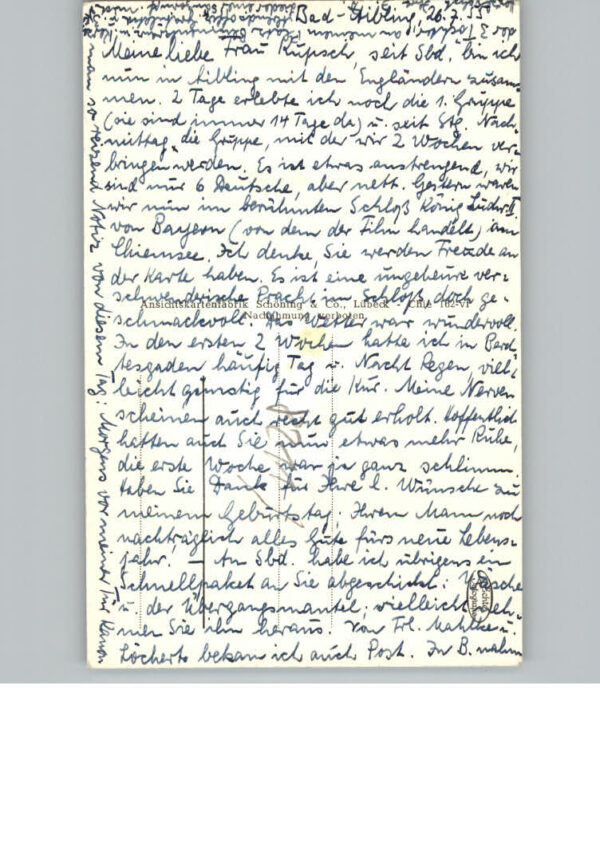 Bad-Aibling, 26.7.55
Meine liebe Frau Kupsch, seit Sbd. bin ich
nun in Aibling mit den Engländern zusam-
men. 2 Tage erlebte ich noch die 1. Gruppe
(sie sind immer 14 Tage da) u. seit Stg. Nach-
mittag die Gruppe, mit der wir 2 Wochen ver-
bringen werden. Es ist etwas anstrengend, wir
sind nur 6 Deutsche, aber nett. Gestern waren
wir nun im berühmten Schloß König Ludw. II.
von Bayern (von dem der Film handelt) am
Chiemsee. Ich denke, Sie werden Freude an
der Karte haben. Es ist eine ungeheure ver-
schwenderische Pracht im Schloß, doch ge-
Ansichtskartenfabrik Schöning & Co., Lübeck
Nachahmung verboten
schmackvoll. Das Wetter war wundervoll.
In den ersten 2 Wochen hatte ich in Berch
tesgaden häufig Tag u. Nacht Regen, viel-
leicht günstig für die Kur. Meine Nerven
scheinen auch recht gut erholt. Hoffentlich
hatten auch Sie nun etwas mehr Ruhe,
die erste Woche war ja ganz schlimm.
Haben Sie Dank für Ihre l. Wünsche zu
meinem Geburtstag. Ihrem Mann noch
nachträglich alles Gute fürs neue Lebens-
jahr. – Am Sbd. habe ich übrigens ein
Schnellpaket an Sie abgeschickt: Wäsche
u. der Übergangsmantel, vielleicht neh-
men Sie ihn heraus. Von Frl. Mahlke u.
Löcherts bekam ich auch Post. In B. nahm
man so reizend Notiz von diesem Tag: Morgens vor meiner Tür Kanon